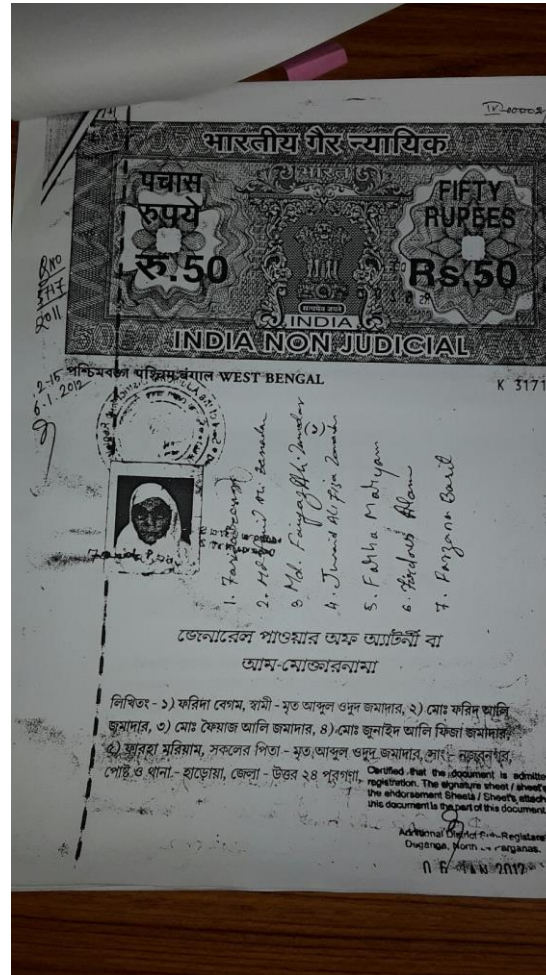 भारतीय गैर न्यायिक
भारत
पचास
रुपये
रु.50
FIFTY
RUPEES
Rs.50
सत्यमेव जयते
INDIA
INDIA NON JUDICIAL
পশ্চিমবঙ্গ पश्चिम बंगाल WEST BENGAL
K 3171
2011
6.1.2012
1. Farida
2. Md
3. Md. Faiyaz Ali
4. Junaid Ali Fija
5. Farha Mariyam
6. Firdous Alam
7. Farzana
জেনারেল পাওয়ার অফ অ্যাটর্নী বা
আম-মোক্তারনামা
লিখিতং - ১) ফরিদা বেগম, স্বামী - মৃত আব্দুল ওদুদ জমাদার, ২) মোঃ ফরিদ আলি
জমাদার, ৩) মোঃ ফৈয়াজ আলি জমাদার, ৪) মোঃ জুনাইদ আলি ফিজা জমাদার,
৫) ফারহা মরিয়াম, সকলের পিতা - মৃত আব্দুল ওদুদ জমাদার, সাং - নজরনগর,
পোষ্ট ও থানা - হাড়োয়া, জেলা - উত্তর ২৪ পরগণা,
Certified that the document is admitte
registration. The signature sheet / sheet's
the endorsement Sheets / Sheet's attach
this document is the part of this document
Additional District Sub-Registrar
North 
0 6 JAN 2012